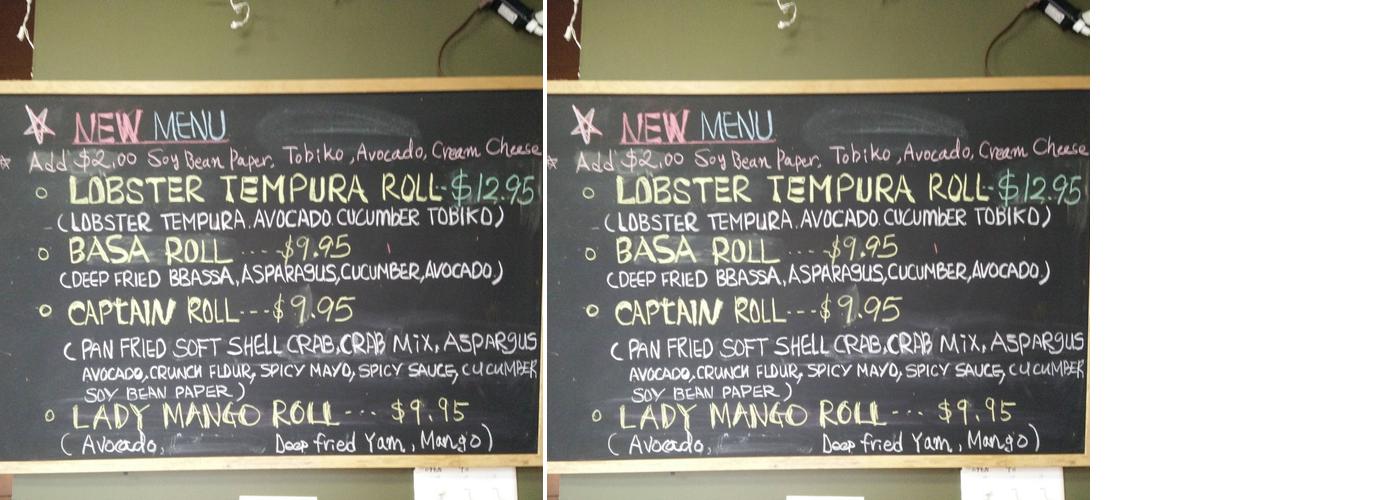 NEW MENU
Add $2.00 Soy Bean Paper, Tobiko, Avocado, Cream Cheese
LOBSTER TEMPURA ROLL--$12.95
(LOBSTER TEMPURA.AVOCADO.CUCUMBER TOBIKO)
BASA ROLL ----$9.95
(DEEP FRIED BBASSA, ASPARAGUS, CUCUMBER, AVOCADO.)
CAPTAIN ROLL---$9.95
( PAN FRIED SOFT SHELL CRAB, CRAB MIX, ASPARGUS
AVOCADO, CRUNCH FLOUR, SPICY MAYO, SPICY SAUCE, CUCUMBER
SOY BEAN PAPER)
LADY MANGO ROLL --- $9.95
( Avocado, Deep fried Yam, Mango)
NEW MENU
Add $2.00 Soy Bean Paper, Tobiko, Avocado, Cream Cheese
LOBSTER TEMPURA ROLL--$12.95
(LOBSTER TEMPURA.AVOCADO.CUCUMBER TOBIKO)
BASA ROLL ----$9.95
(DEEP FRIED BBASSA, ASPARAGUS, CUCUMBER, AVOCADO.)
CAPTAIN ROLL---$9.95
( PAN FRIED SOFT SHELL CRAB, CRAB MIX, ASPARGUS
AVOCADO, CRUNCH FLOUR, SPICY MAYO, SPICY SAUCE, CUCUMBER
SOY BEAN PAPER)
LADY MANGO ROLL --- $9.95
( Avocado, Deep fried Yam, Mango)